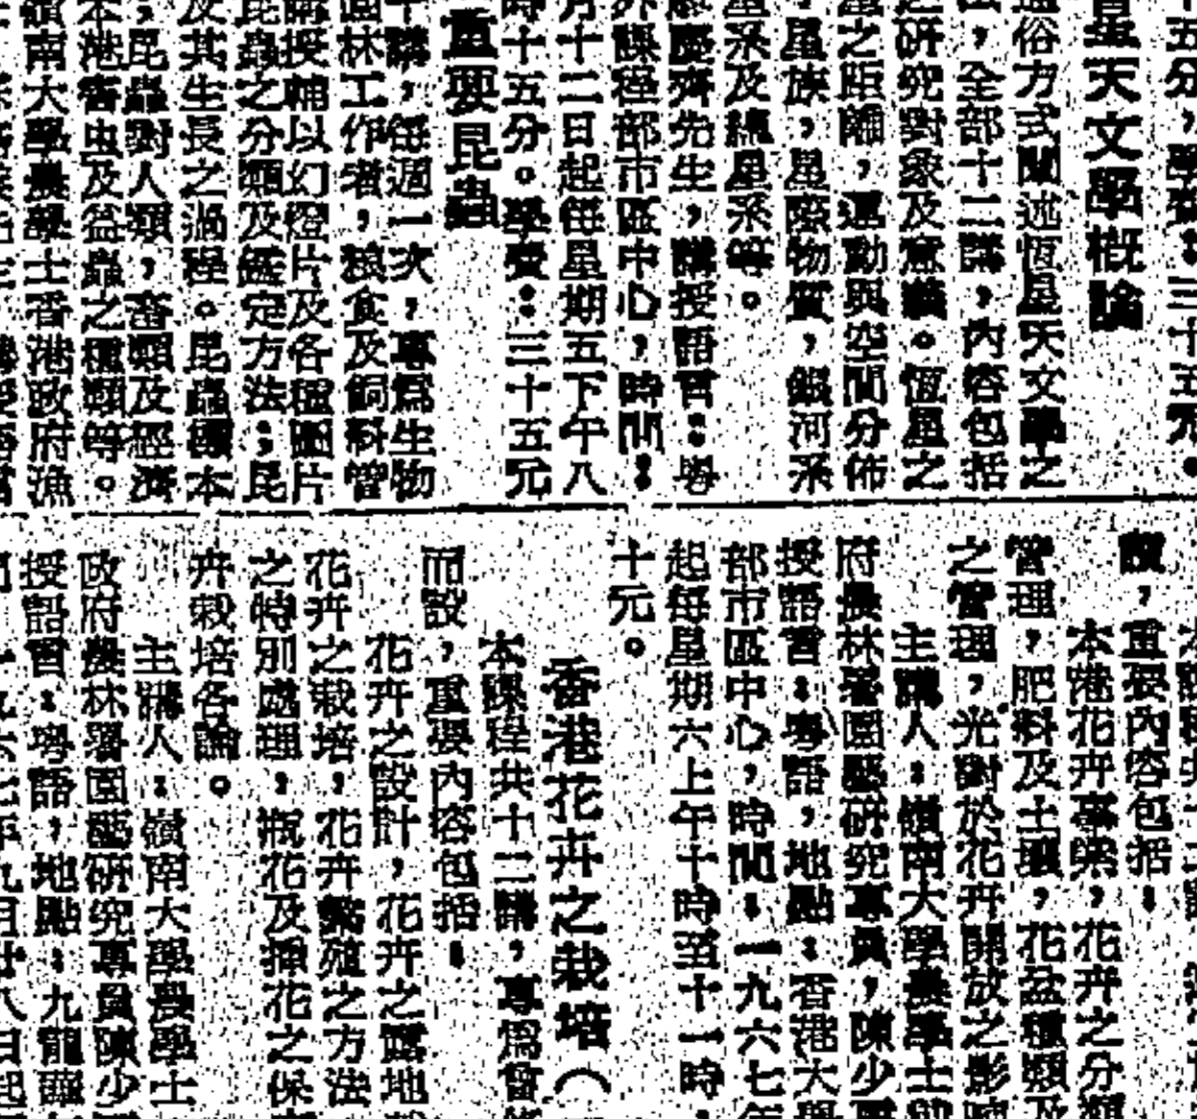 五分，學費：三十五元。
星天文學概論
通俗方式闡述恆星天文學之
，全部十二講，內容包括
之研究對象及意義。恆星之
星之距離，運動與空間分佈
，星族，星際物質，銀河系
星系及總星系等。
慶齊先生，講授語言：粵
外課程部市區中心，時間：
月十二日起每星期五下午八
時十五分。學費：三十五元
重要昆蟲
十講，每週一次，專爲生物
園林工作者，糧食及飼料管
講授輔以幻燈片及各種圖片
昆蟲之分類及鑑定方法；昆
及其生長之過程。昆蟲與本
，昆蟲對人類，畜類及經濟
本港害虫及益蟲之種類等。
嶺南大學農學士香港政府漁
設，重要內容包括：
本港花卉事業，花卉之分類
管理，肥料及土壤，花盆種類及
之管理，光對於花卉開放之影
主講人：嶺南大學農學士
府農林署園藝研究專員，陳少
授語言：粵語，地點：香港大學
部市區中心，時間：一九六七年
起每星期六上午十時至十一時
十元。
香港花卉之栽培（
本課程共十二講，專爲
而設，重要內容包括：
花卉之設計，花卉之露地
花卉之栽培，花卉繁殖之方法
之特別處理，瓶花及插花之保
卉栽培各論。
主講人：嶺南大學農學士
政府農林署園藝研究專員陳少
授語言：粵語，地點：九龍